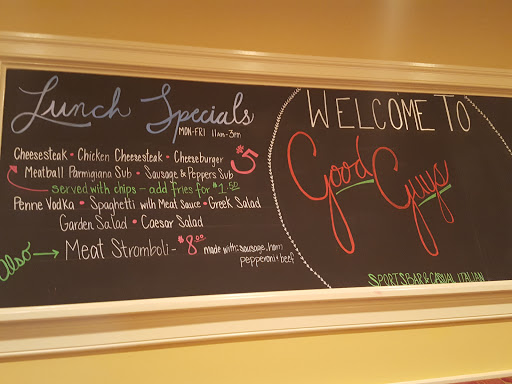 Lunch Specials
MON-FRI 11am-3pm
Cheesesteak • Chicken Cheesesteak • Cheeseburger
Meatball Parmigiana Sub • Sausage & Peppers Sub
$5
served with chips - add fries for $1.50
Penne Vodka • Spaghetti with Meat Sauce • Greek Salad
Garden Salad • Caesar Salad
Also → Meat Stromboli - $8.00 made with: sausage, ham
pepperoni + beef
WELCOME TO
Good
Guys
SPORTSBAR & CASUAL ITALIAN